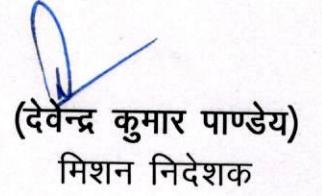 (देवेन्द्र कुमार पाण्डेय)
मिशन निदेशक